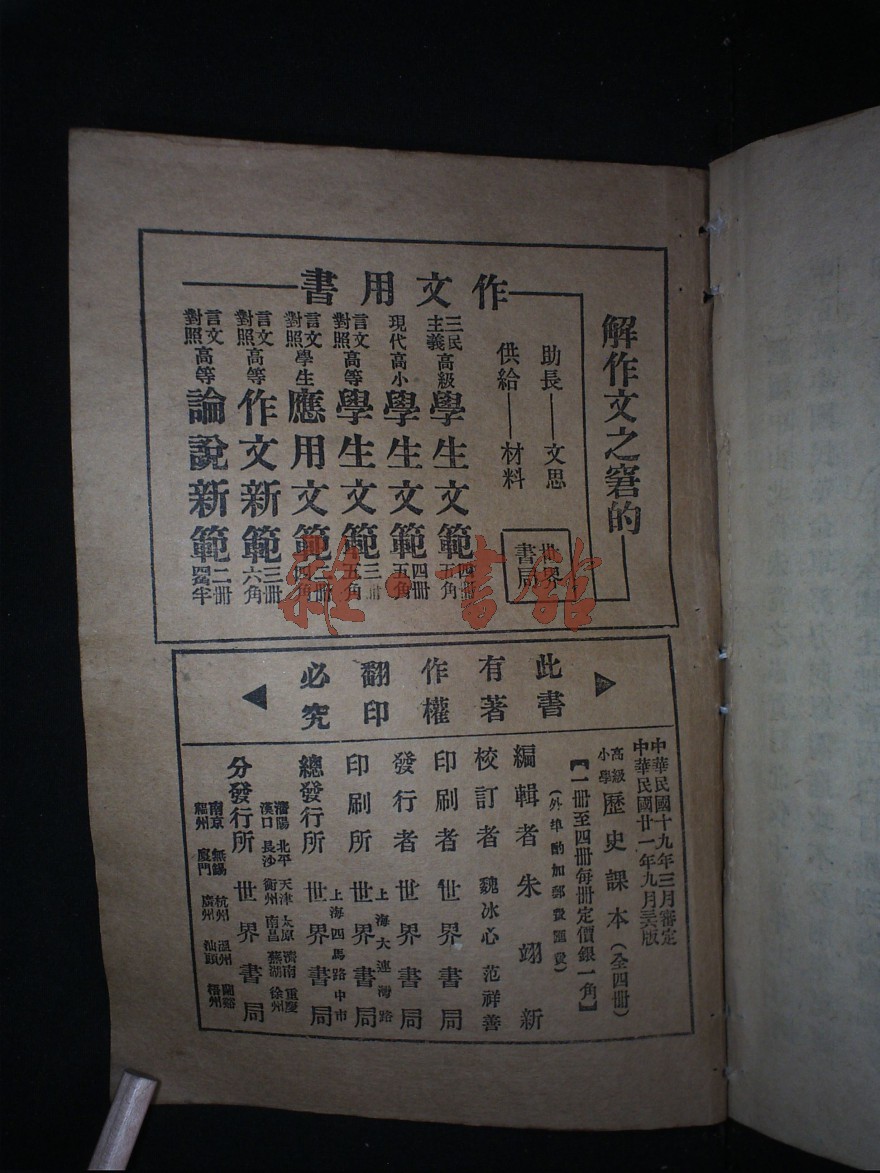 解作文之窘的
助長——文思
供給——材料
世界書局
作文用書
三民主義高級學生文範四冊五角
現代高小學生文範四冊五角
言文對照高等學生文範三冊五角
言文對照學生應用文範二冊四角
言文對照高等作文新範三冊六角
言文對照高等論說新範二冊
雅·書館
此書有著作權翻印必究
中華民國十九年三月審定
中華民國廿一年九月版
高級小學歷史課本（全四冊）
【一冊至四冊每冊定價銀一角】
（外埠酌加郵費匯費）
編輯者 朱翊新
校訂者 魏冰心 范祥善
印刷者 世界書局
發行者 世界書局
印刷所 上海大連灣路 世界書局
總發行所 上海四馬路中市 世界書局
分發行所 世界書局
瀋陽 北平 天津 太原 濟南 重慶
漢口 長沙 衡州 南昌 蕪湖 徐州
南京 無錫 杭州 溫州 蘭谿
福州 廈門 廣州 汕頭 梧州